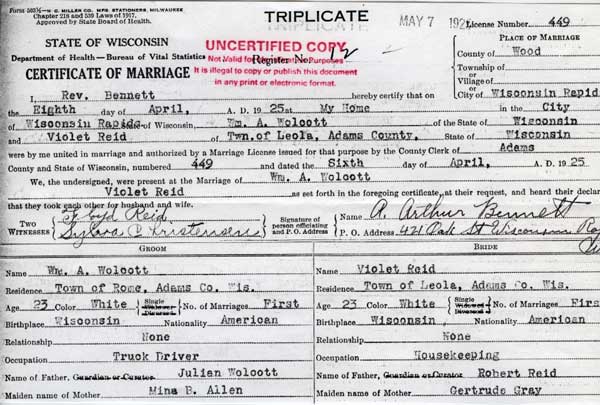 Form 503½—H. C. MILLER CO. MFG. STATIONERS, MILWAUKEE
Chapter 218 and 539 Laws of 1917.
Approved by State Board of Health.
TRIPLICATE
MAY 7 192
License Number, 449
STATE OF WISCONSIN
Department of Health—Bureau of Vital Statistics
CERTIFICATE OF MARRIAGE
UNCERTIFIED COPY
Not Valid for Identification Purposes
It is illegal to copy or publish this document
in any print or electronic format.
Register No. 12
PLACE OF MARRIAGE
County of Wood
Township of
or
Village of
or
City of Wisconsin Rapid
I, Rev. Bennett hereby certify that on
the Eighth day of April, A. D. 1925 at My Home in the City
of Wisconsin Rapids State of Wisconsin, Wm. A. Wolcott of the State of Wisconsin
and Violet Reid of Twn. of Leola, Adams County, State of Wisconsin
were by me united in marriage and authorized by a Marriage License issued for that purpose by the County Clerk of Adams
County and State of Wisconsin, numbered 449 and dated the Sixth day of April, A. D. 1925
We, the undersigned, were present at the Marriage of Wm. A. Wolcott
Violet Reid as set forth in the foregoing certificate, at their request, and heard their declar
that they took each other for husband and wife.
TWO WITNESSES
Floyd Reid
Sylvia C Christensen
Signature of person officiating and P. O. Address
Name A. Arthur Bennett
P. O. Address 421 Oak St Wisconsin Rap
GROOM
Name Wm. A. Wolcott
Residence Town of Rome, Adams Co. Wis.
Age 23 Color White Single Widowed Divorced No. of Marriages First
Birthplace Wisconsin Nationality American
Relationship None
Occupation Truck Driver
Name of Father, Guardian or Curator Julian Wolcott
Maiden name of Mother Mina B. Allen
BRIDE
Name Violet Reid
Residence Town of Leola, Adams Co. Wis.
Age 23 Color White Single Widowed Divorced No. of Marriages Firs
Birthplace Wisconsin Nationality American
Relationship None
Occupation Housekeeping
Name of Father, Guardian or Curator Robert Reid
Maiden name of Mother Gertrude Gray